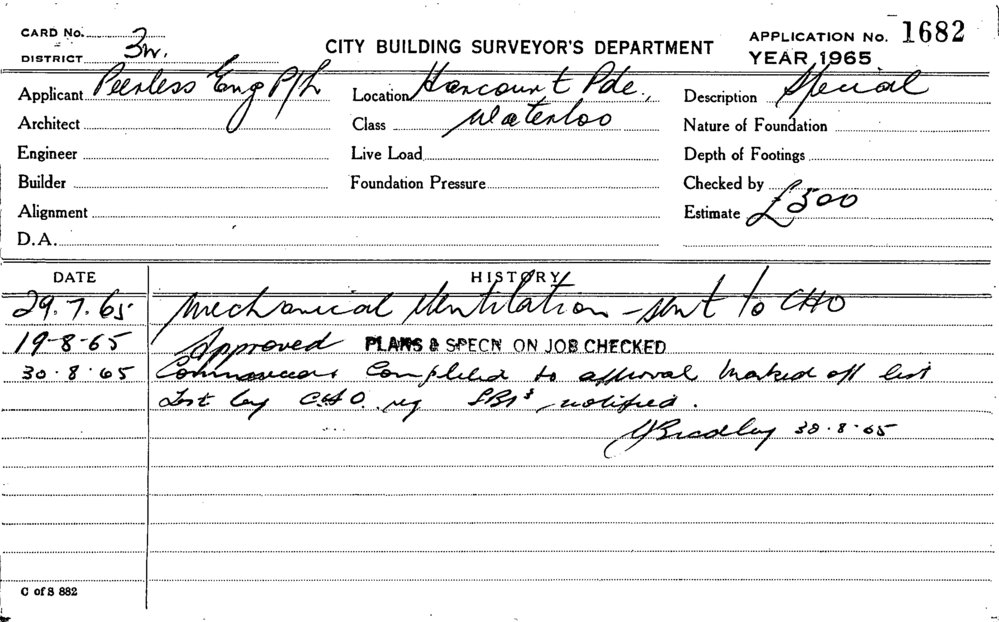 CARD No. 3W.
DISTRICT
CITY BUILDING SURVEYOR'S DEPARTMENT
APPLICATION No. 1682
YEAR 1965
Applicant Peerless Eng P/L
Location Harcourt Pde.,
Description Special
Architect
Class Waterloo
Nature of Foundation
Engineer
Live Load
Depth of Footings
Builder
Foundation Pressure
Checked by
Alignment
Estimate £500
D.A.
DATE HISTORY
29.7.65 Mechanical Ventilation - sent to CHO
19-8-65 Approved PLANS & SPECN ON JOB CHECKED
30.8.65 Completed to approval marked off list
by C.H.O. notified.
Bradley 30.8.65
C of S 882